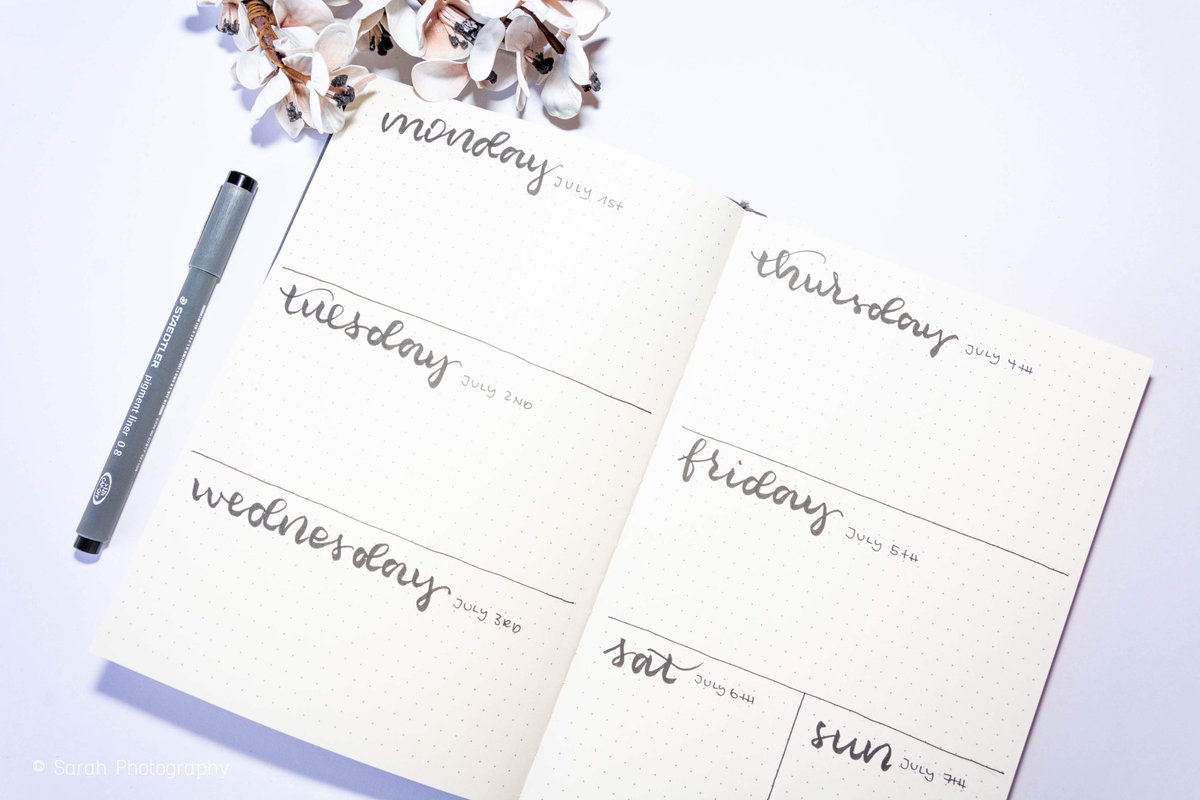 monday JULY 1st
tuesday JULY 2ND
wednesday JULY 3RD
thursday JULY 4TH
friday JULY 5TH
sat JULY 6TH
sun JULY 7TH
STAEDTLER pigment liner 0.8
© Sarah Photography